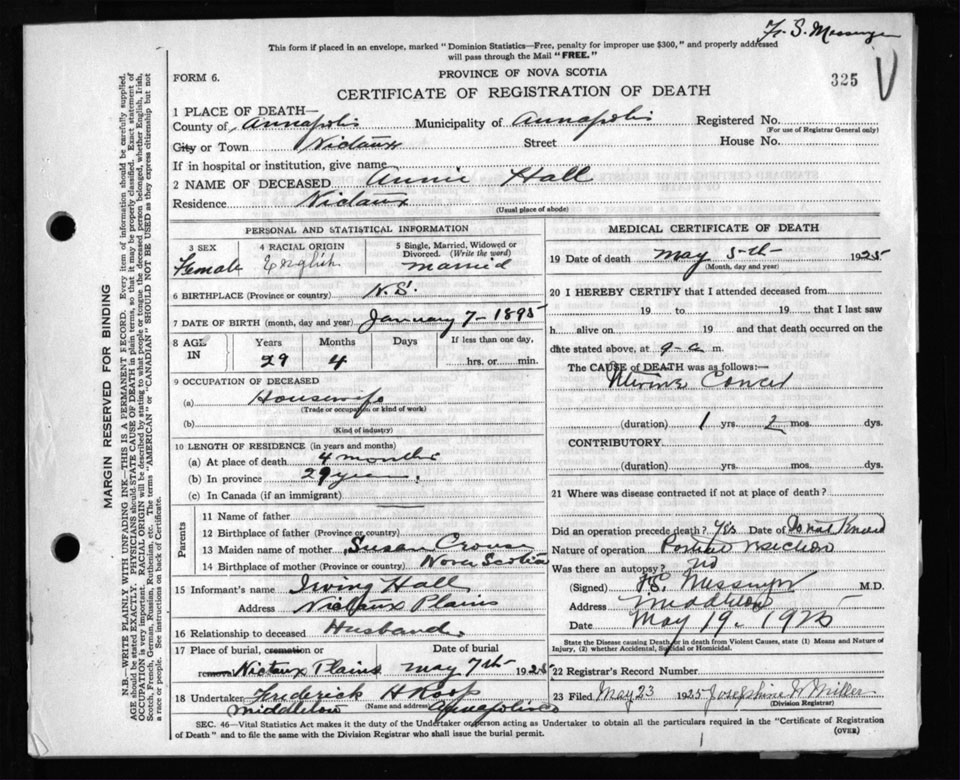 F. S. Messenger
This form if placed in an envelope, marked "Dominion Statistics—Free, penalty for improper use $300," and properly addressed
will pass through the Mail "FREE."
FORM 6.
PROVINCE OF NOVA SCOTIA
325
CERTIFICATE OF REGISTRATION OF DEATH
1 PLACE OF DEATH—
County of Annapolis Municipality of Annapolis Registered No.
(For use of Registrar General only)
City or Town Nictaux Street House No.
If in hospital or institution, give name
2 NAME OF DECEASED Annie Hall
Residence Nictaux
(Usual place of abode)
PERSONAL AND STATISTICAL INFORMATION
3 SEX Female
4 RACIAL ORIGIN English
5 Single, Married, Widowed or
Divorced. (Write the word)
Married
6 BIRTHPLACE (Province or country) N.S.
7 DATE OF BIRTH (month, day and year) January 7 - 1895
8 AGE IN Years Months Days If less than one day,
29 4 hrs. or min.
9 OCCUPATION OF DECEASED
(a) Housewife
(Trade or occupation or kind of work)
(b)
(Kind of industry)
10 LENGTH OF RESIDENCE (in years and months)
(a) At place of death 4 months
(b) In province 29 years
(c) In Canada (if an immigrant)
Parents
11 Name of father
12 Birthplace of father (Province or country)
13 Maiden name of mother Susan
14 Birthplace of mother (Province or country) Nova Scotia
15 Informant's name Irving Hall
Address Nictaux Plains
16 Relationship to deceased Husband
17 Place of burial, cremation or Date of burial
removal Nictaux Plains May 7th 1925
18 Undertaker Frederick H Roop
(Name and address)
Middleton Annapolis Co
MEDICAL CERTIFICATE OF DEATH
19 Date of death May 5th 1925
(Month, day and year)
20 I HEREBY CERTIFY that I attended deceased from
19 to 19 that I last saw
h alive on 19 and that death occurred on
the date stated above, at 9-a m.
The CAUSE of DEATH was as follows:—
Uterine Cancer
(duration) 1 yrs. 2 mos. dys.
CONTRIBUTORY
(duration) yrs. mos. dys.
21 Where was disease contracted if not at place of death?
Did an operation precede death? Yes Date of Do not Know
Nature of operation
Was there an autopsy? no
(Signed) F.S. Messenger M.D.
Address Middleton
Date May 19. 1925
State the Disease causing Death, or in death from Violent Causes, state (1) Means and Nature of
Injury, (2) whether Accidental, Suicidal or Homicidal.
22 Registrar's Record Number
23 Filed May 23 1925 Josephine W Miller
(Division Registrar)
SEC. 46—Vital Statistics Act makes it the duty of the Undertaker or person acting as Undertaker to obtain all the particulars required in the "Certificate of Registration
of Death" and to file the same with the Division Registrar who shall issue the burial permit.
(OVER)
MARGIN RESERVED FOR BINDING
N.B.—WRITE PLAINLY WITH UNFADING INK—THIS IS A PERMANENT RECORD. Every item of information should be carefully supplied.
AGE should be stated EXACTLY. PHYSICIANS should STATE CAUSE OF DEATH in plain terms, so that it may be properly classified. Exact statement of
OCCUPATION is very important. RACIAL ORIGIN will be described by stating to what people or tongue the deceased person belonged, whether English, Irish,
Scotch, French, German, Russian, Ruthenian, etc. The terms "AMERICAN" or "CANADIAN" SHOULD NOT BE USED as they express citizenship but not
a race or people. See instructions on back of Certificate.